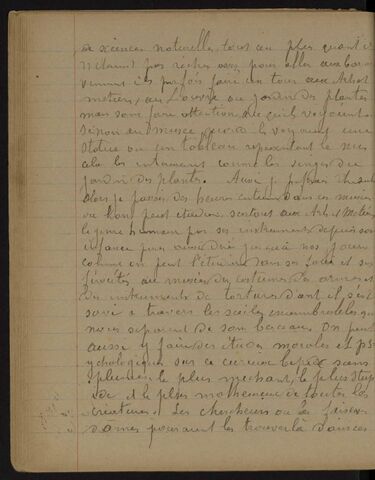 de sciences naturelles, tout au plus quand il
n'étaient pas riches avec pour aller aux
venaient ils parfois faire un tour aux Arts et
métiers, au Louvre au jardin des plantes
mais sans faire attention à ce qu'ils voyaient
Sinon au musée, quand ils voyaient une
statue ou un tableau représentant le sexe
cela les intéressaient comme les singes du
jardin des plantes. Aussi je
alors je passais des heures entières dans ces musées
ou l'on peut étudier surtout aux Arts et Métiers
le genre humain par ses instruments depuis son
enfance jusqu'à nos jours
comme on peut l'étudier dans ses lois et ses
férocités au musée des costumes des armes et
des instruments de tortures dont il s'est
servi a travers les siècles innombrables qui
nous séparent de son berceau. On peut
aussi y faire des études morales et ps
ychologiques sur ce curieux bipède sans
plumes le plus méchant, le plus stup
ide et le plus malheureux de toutes les
créatures. Les chercheurs ou les
d'âmes pourraient les trouver là dans ces